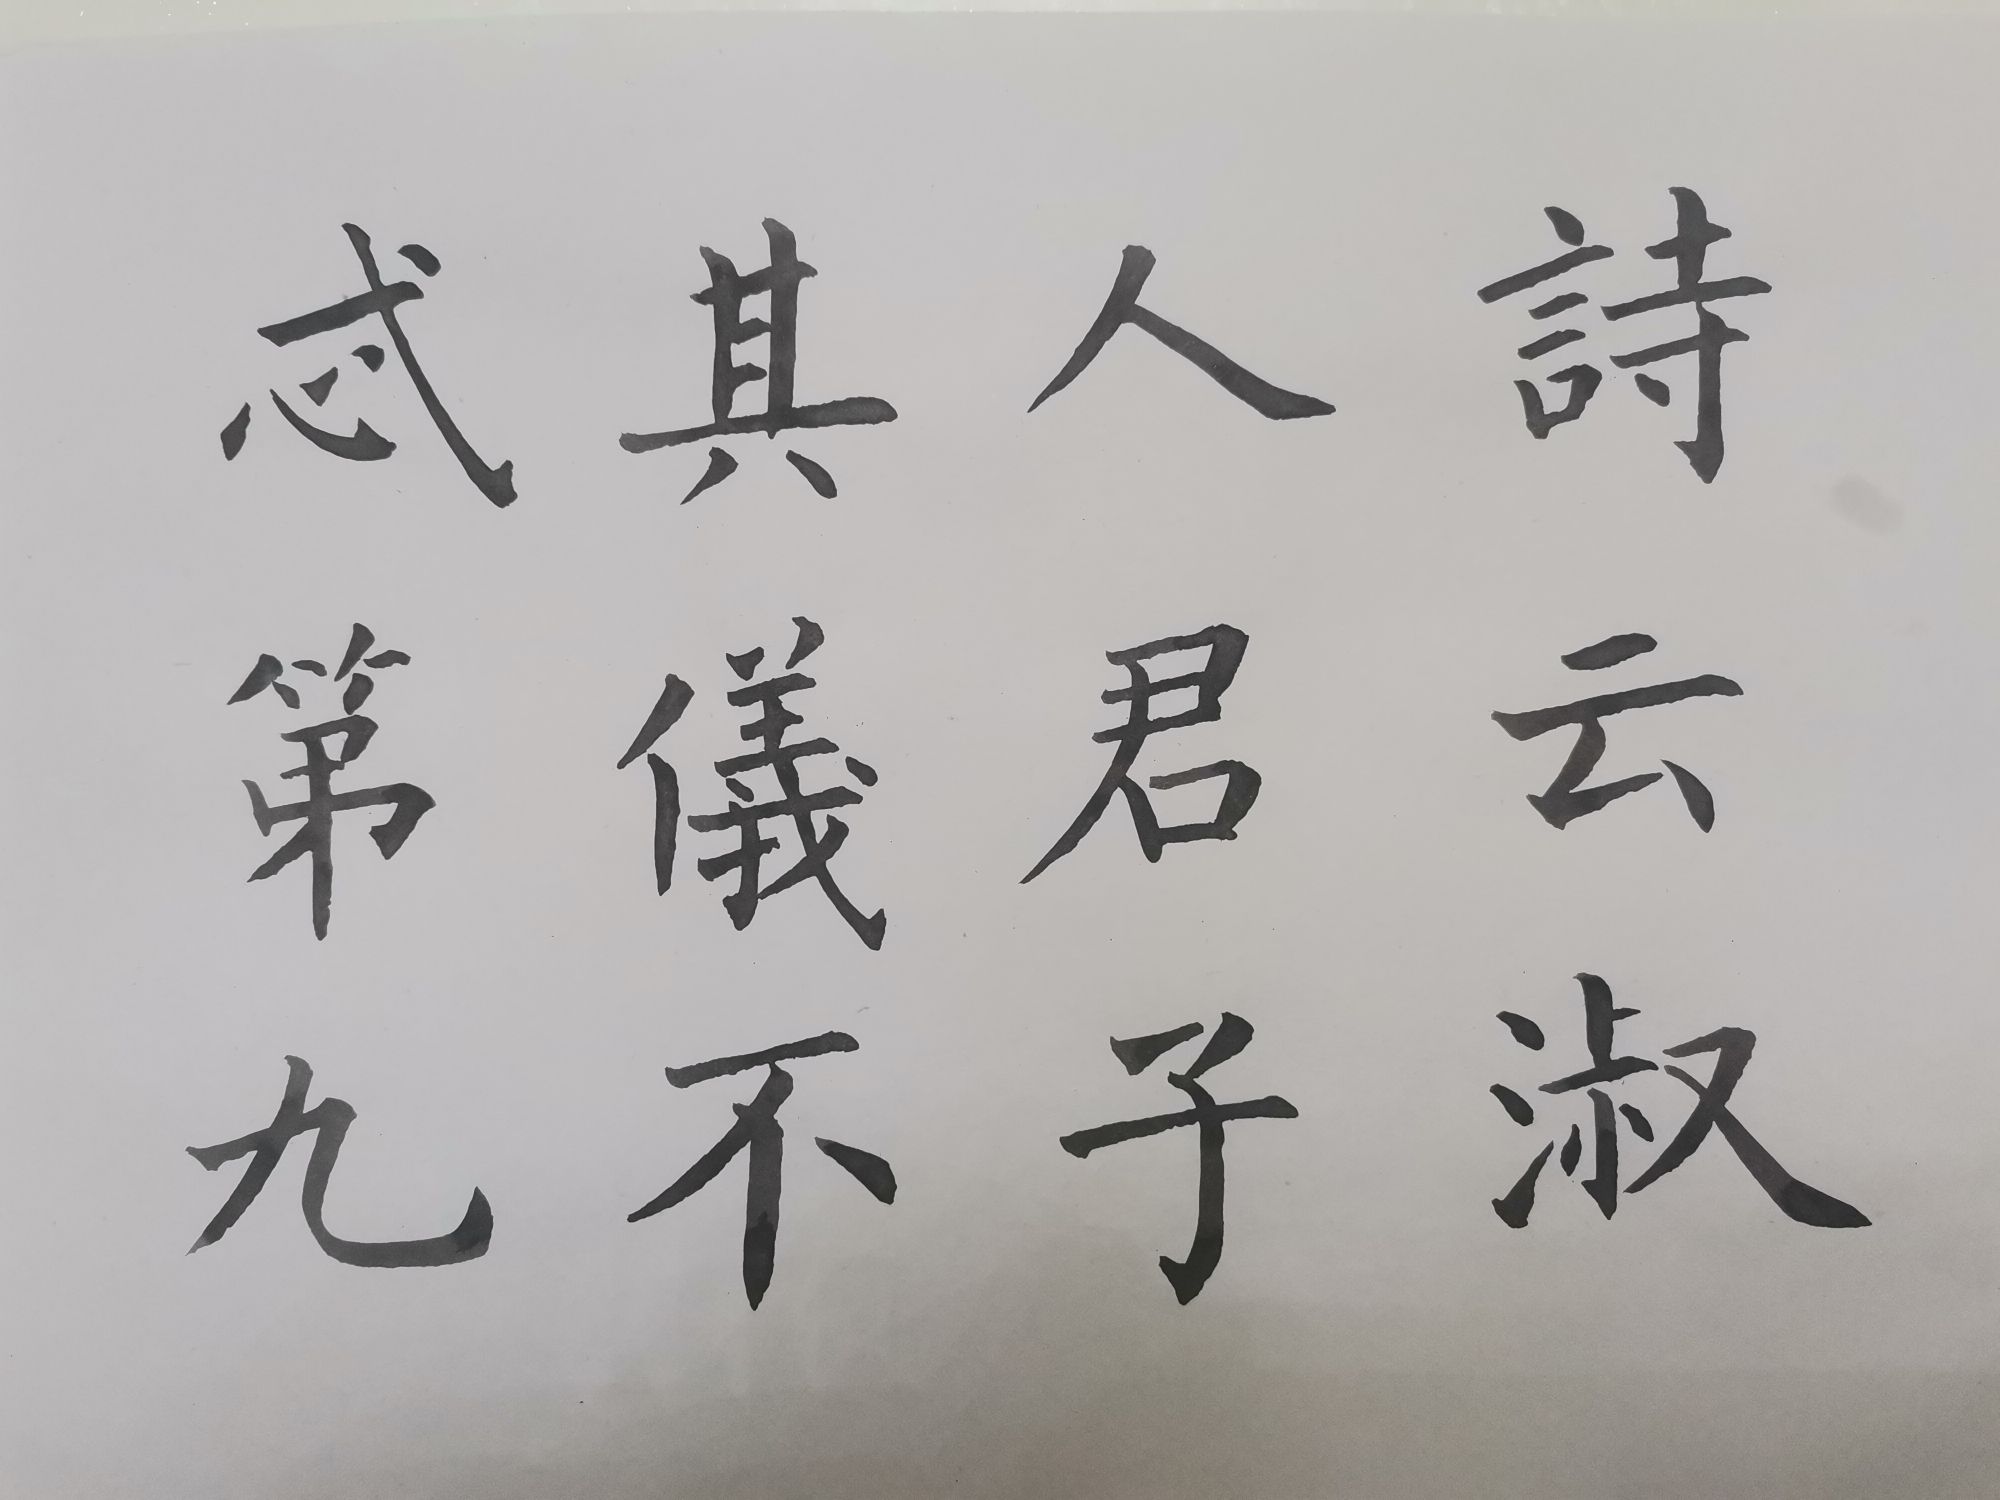 詩云淑
人君子
其儀不
忒第九